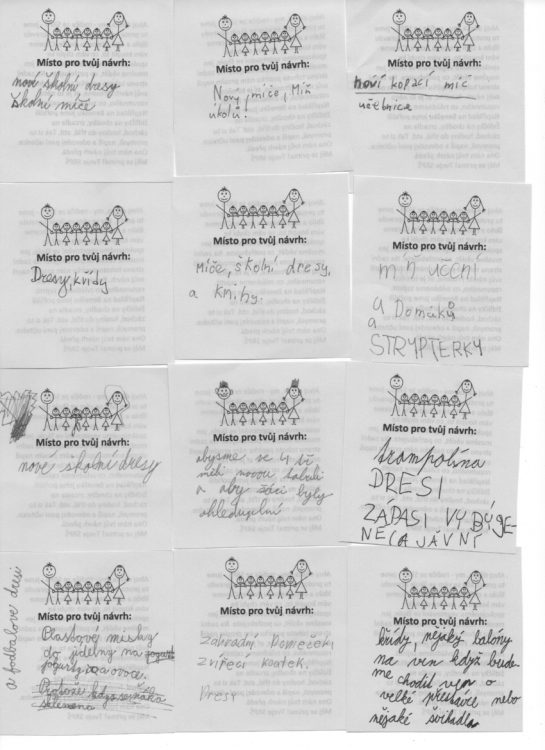 Místo pro tvůj návrh:
noví školní dresy
školní míče
Místo pro tvůj návrh:
Nový, míče, Míň
úkolů!
Místo pro tvůj návrh:
noví kopací mič
učebnice
Místo pro tvůj návrh:
Dresy, křídy
Místo pro tvůj návrh:
Míče, školní dresy,
a knihy.
Místo pro tvůj návrh:
míň učení
a Domáků
a
STRYPTERKY
Místo pro tvůj návrh:
nové školní dresy
abysme se 4 tř
měli novou tabuli
a aby žáci byly
ohleduplní
Místo pro tvůj návrh:
trampolína
DRESI
ZÁPASI VYBÝJE-
NELAJAVNÍ
a fodbalove dresi
Místo pro tvůj návrh:
Plastové misky
do jídelny na
jogurty a ovoce.
Protože když
skleněná
Místo pro tvůj návrh:
Zahradný Domeček,
Zvířecí koutek.
Dresy
Místo pro tvůj návrh:
křídy, nějaký balóny
na ven když bude-
me chodit ven o
velké přestávce nebo
nějaké švihadla